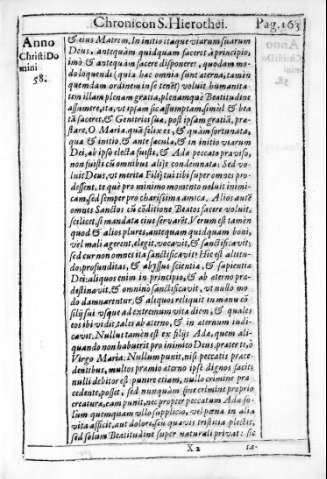 Chronicon S. Hierothei. Pag. 163
Anno
Christi Do
mini
58.
& eius Matrem. In initio itaque viarum suarum
Deus, antequàm quidquam faceret à principio,
imò & antequàm facere disponeret, quodam mo-
do loquendi (quia hæc omnia sunt æterna, tamen
quemdam ordinem in se tenẽt) voluit humanita-
tem illam plenam gratia, plenamquè Beatitudine
assumere, ita, vt ipsam sic assumptam, simul & bea
tã faceret, & Genitrix sua, post ipsam gratiã, præ-
staret. O Maria, quã felix es, & quàm fortunata,
quæ & initio, & ante sæcula, & in initio viarum
Dei, ab ipso electa fuisti, & Ada peccato prævisso,
non fuisti cũ omnibus alijs condemnata: Sed vo-
luit Deus, vt merita Filij tui tibi super omnes pro-
dessent, te què pro minimo momento noluit inimi-
cam, sed semper pro charissima amica. Alios autẽ
omnes Sanctos cũ cõditione Beatos facere voluit,
scilicet, si mandata eius servaris. Verum est tamen
quod & alios plures, antequam quidquam boni,
vel mali agerent, elegit, vocavit, & sanctificavit:
sed cur non omnes ita sanctificavit? Hic est altitu-
do, profunditas, & abyssus scientiæ, & sapientiæ
Dei: aliquos enim in principio, & ab æterno præ-
destinavit, & omninò sanctificavit, vt nullo mo-
do damnarentur: & aliquos reliquit in manu cõ-
silij sui vsque ad extremum vitæ diem, & quales
eos ibi vidit, tales ab æterno, & in æternum iudi-
cavit. Nullus tamen est ex filijs Adæ, quem ali-
quando non habuerit pro inimico Deus, præter te, ò
Virgo Maria. Nullum punit, nisi peccatis præce-
dentibus, multos præmio æterno ipse dignos facit:
nulli debitor est: punire etiam, nullo crimine præ-
cedente, posset, sed nunquàm sine crimine proprio
creaturæ, eam punit, nec propter peccatum Adæ so-
lum quemquam vllo supplicio, vel pœna in alia
vita afficit, aut dolore, seu quavis tristitia plectit,
sed solum Beatitudine super naturali privat: sic
X 2